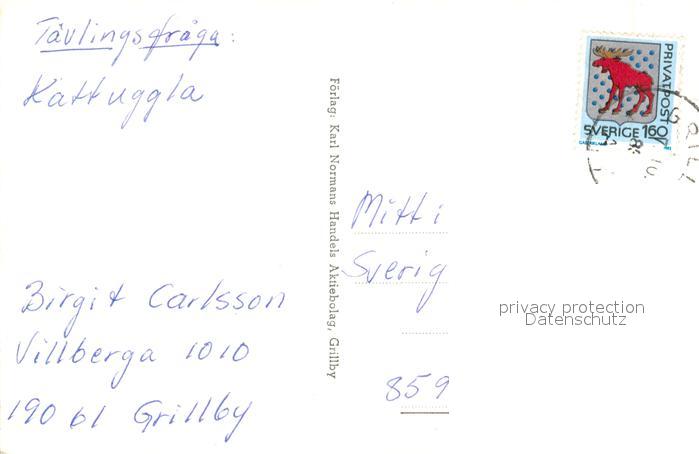 Tävlingsfråga:
Kattuggla
Birgit Carlsson
Villberga 1010
190 61 Grillby
Förlag: Karl Normans Handels Aktiebolag, Grillby
PRIVATPOST
SVERIGE 160
Mitt i
Sverig
859
privacy protection
Datenschutz